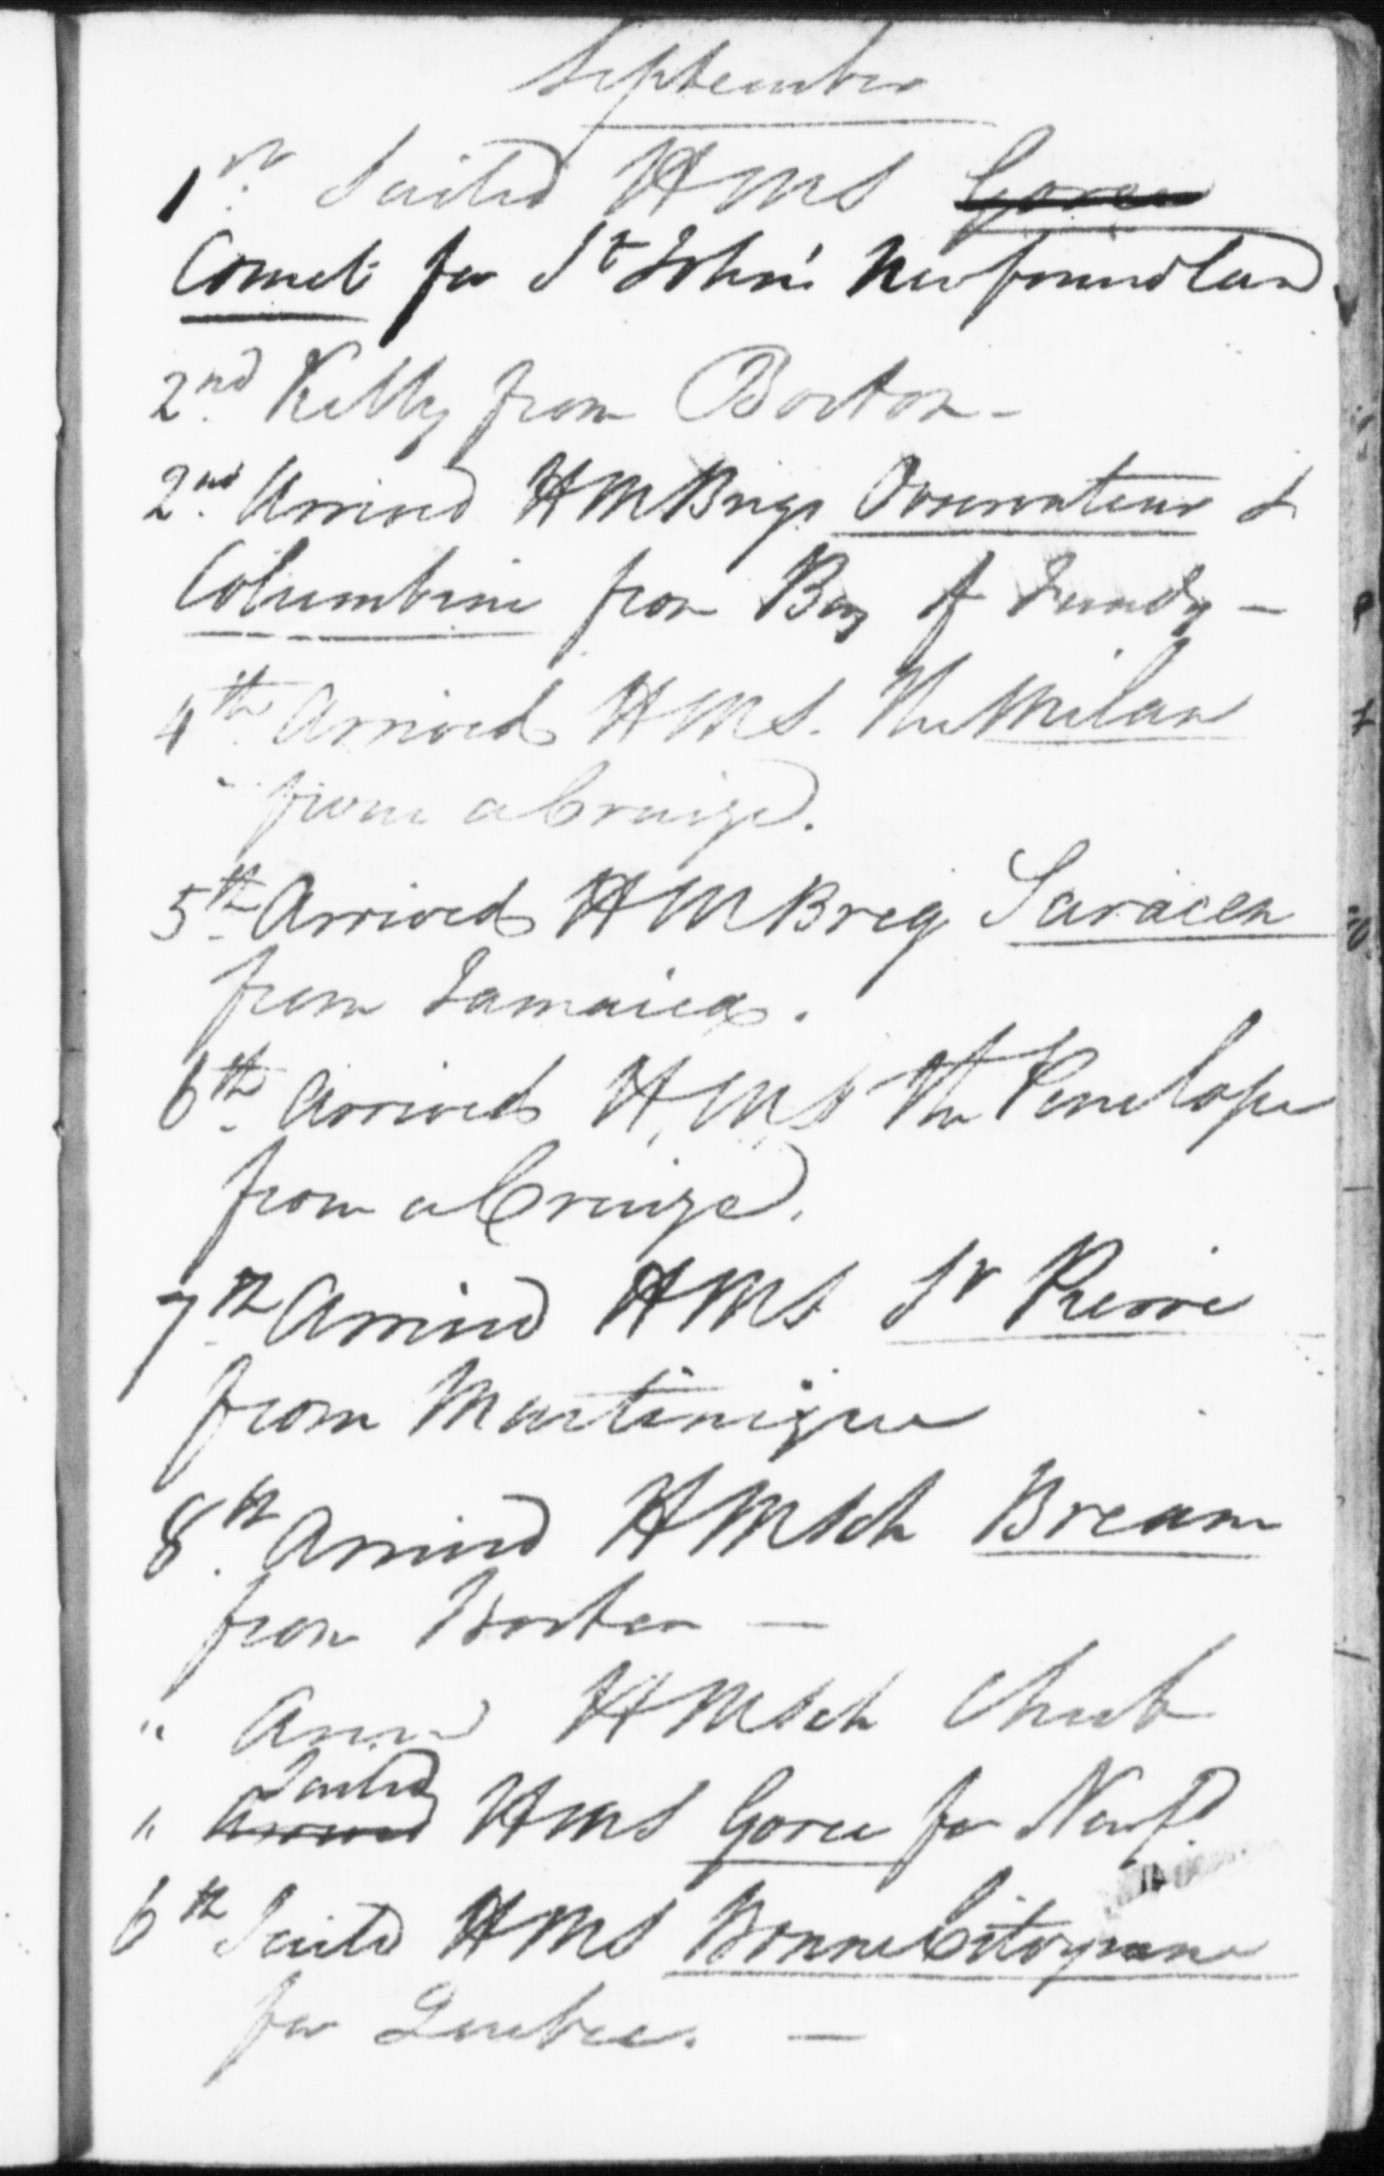 September
1st Sailed HMS Goree
Comet for St John's Newfoundland
2nd Kelly from Boston -
2nd Arrived HM Brigs Observateur &
Columbine from Bay of Fundy -
4th Arrived HMS. The Milan
from a Cruize.
5th Arrived HM Brig Saracen
from Jamaica.
6th Arrived H.M.S The Penelope
from a Cruize.
7th Arrived HMS St Pierre
from Martinique
8th Arrived HMSch Bream
from Boston -
" Arrd HMSch Chub
Sailed
" Arrived HMS Goree for Newfd
6th Sailed HMS Bonne Citoyenne
for Quebec. -